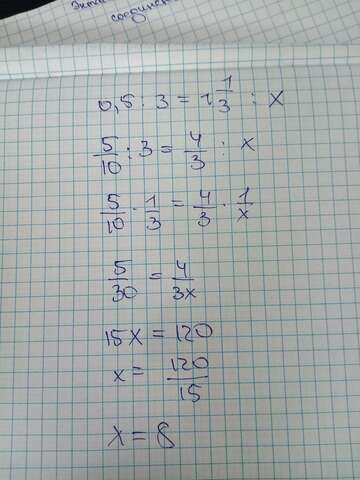 соединен
0,5 : 3 = 1 1/3 : x
5/10 : 3 = 4/3 : x
5/10 · 1/3 = 4/3 · 1/x
5/30 = 4/3x
15x = 120
x = 120/15
x = 8